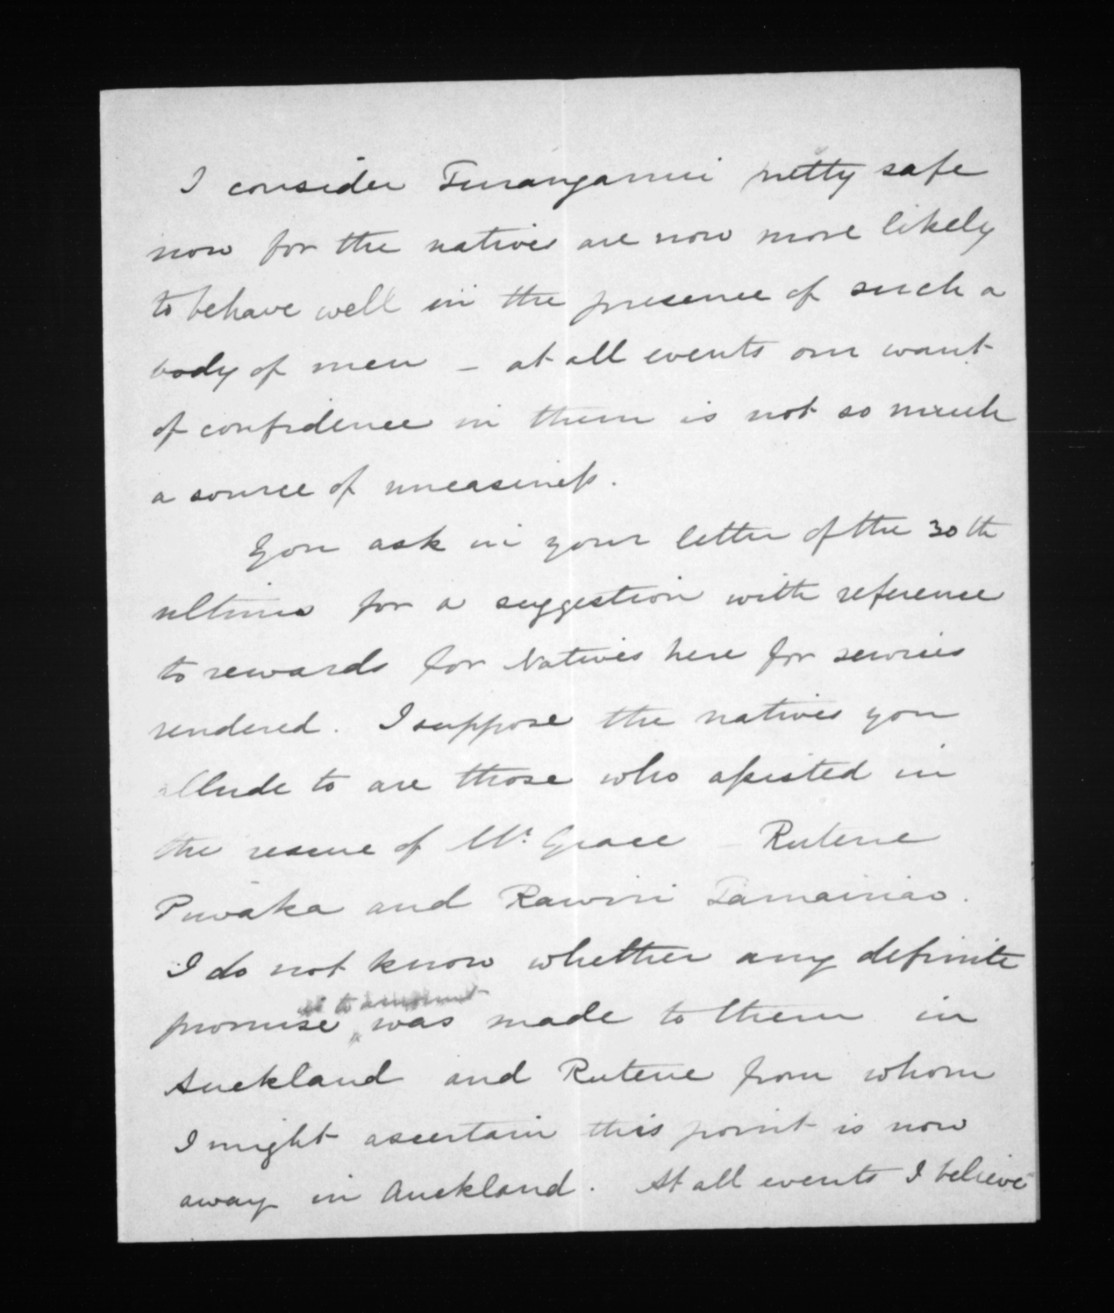 I consider Turanganui pretty safe
now for the natives are now more likely
to behave well in the presence of such a
body of men – at all events our want
of confidence in them is not so much
a source of uneasiness.
You ask in your letter of the 30th
ultimo for a suggestion with reference
to rewards for Natives here for services
rendered. I suppose the natives you
allude to are those who assisted in
the rescue of Mr. Grace – Rutene
Piwaka and Rawiri Tamainiao.
I do not know whether any definite
as to amount
promise ‸ was made to them in
Auckland and Rutene from whom
I might ascertain this point is now
away in Auckland. At all events I believe